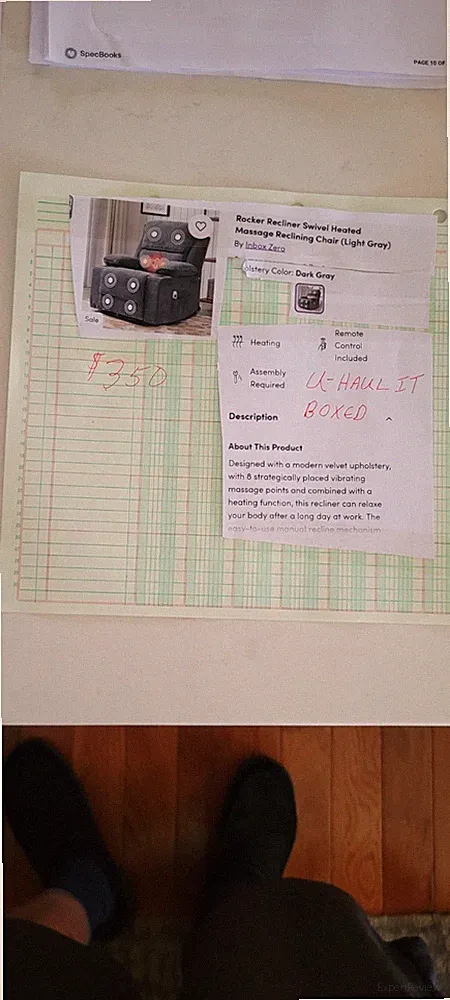 SpecBooks
PAGE 10 OF
Rocker Recliner Swivel Heated
Massage Reclining Chair (Light Gray)
By Inbox Zero
olstery Color: Dark Gray
Sale
Heating
Remote
Control
Included
Assembly
Required
$350
U-HAUL IT
BOXED
Description
About This Product
Designed with a modern velvet upholstery,
with 8 strategically placed vibrating
massage points and combined with a
heating function, this recliner can relaxe
your body after a long day at work. The
easy-to-use manual recline mechanism
ExpertReview